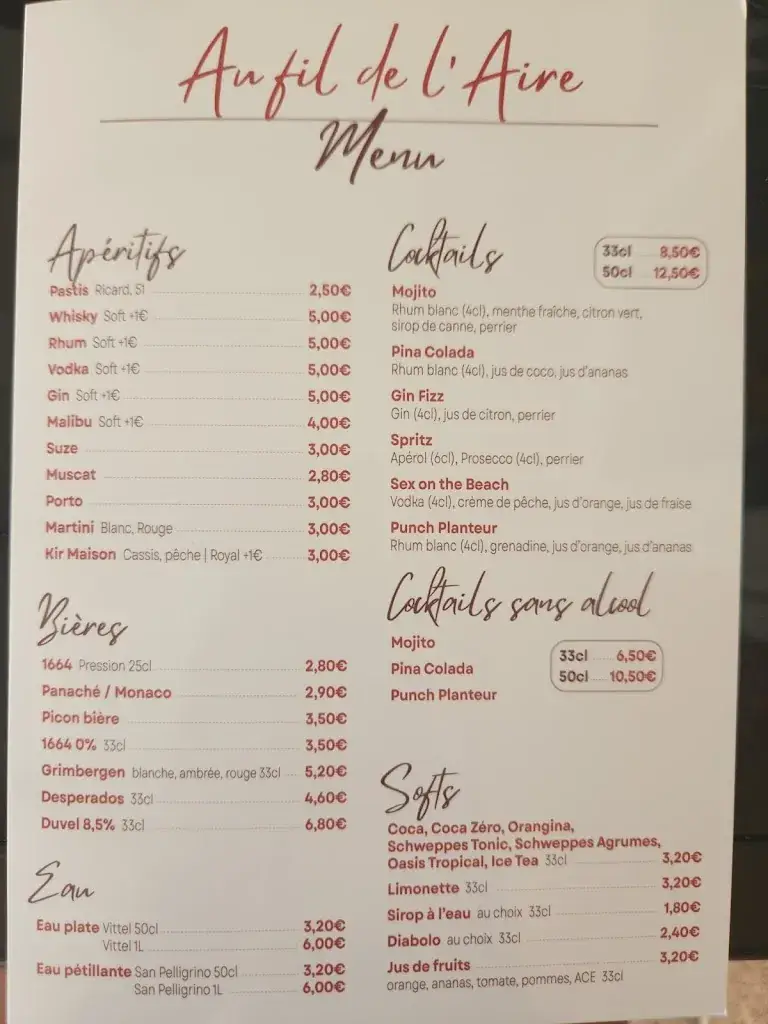 Au fil de l'Aire
Menu
Apéritifs
Pastis Ricard, 51 2,50€
Whisky Soft +1€ 5,00€
Rhum Soft +1€ 5,00€
Vodka Soft +1€ 5,00€
Gin Soft +1€ 5,00€
Malibu Soft +1€ 4,00€
Suze 3,00€
Muscat 2,80€
Porto 3,00€
Martini Blanc, Rouge 3,00€
Kir Maison Cassis, pêche | Royal +1€ 3,00€
Bières
1664 Pression 25cl 2,80€
Panaché / Monaco 2,90€
Picon bière 3,50€
1664 0% 33cl 3,50€
Grimbergen blanche, ambrée, rouge 33cl 5,20€
Desperados 33cl 4,60€
Duvel 8,5% 33cl 6,80€
Eau
Eau plate Vittel 50cl 3,20€
Vittel 1L 6,00€
Eau pétillante San Pelligrino 50cl 3,20€
San Pelligrino 1L 6,00€
Cocktails
33cl 8,50€
50cl 12,50€
Mojito
Rhum blanc (4cl), menthe fraîche, citron vert,
sirop de canne, perrier
Pina Colada
Rhum blanc (4cl), jus de coco, jus d'ananas
Gin Fizz
Gin (4cl), jus de citron, perrier
Spritz
Apérol (6cl), Prosecco (4cl), perrier
Sex on the Beach
Vodka (4cl), crème de pêche, jus d'orange, jus de fraise
Punch Planteur
Rhum blanc (4cl), grenadine, jus d'orange, jus d'ananas
Cocktails sans alcool
Mojito
Pina Colada
Punch Planteur
33cl 6,50€
50cl 10,50€
Softs
Coca, Coca Zéro, Orangina,
Schweppes Tonic, Schweppes Agrumes,
Oasis Tropical, Ice Tea 33cl 3,20€
Limonette 33cl 3,20€
Sirop à l'eau au choix 33cl 1,80€
Diabolo au choix 33cl 2,40€
Jus de fruits 3,20€
orange, ananas, tomate, pommes, ACE 33cl